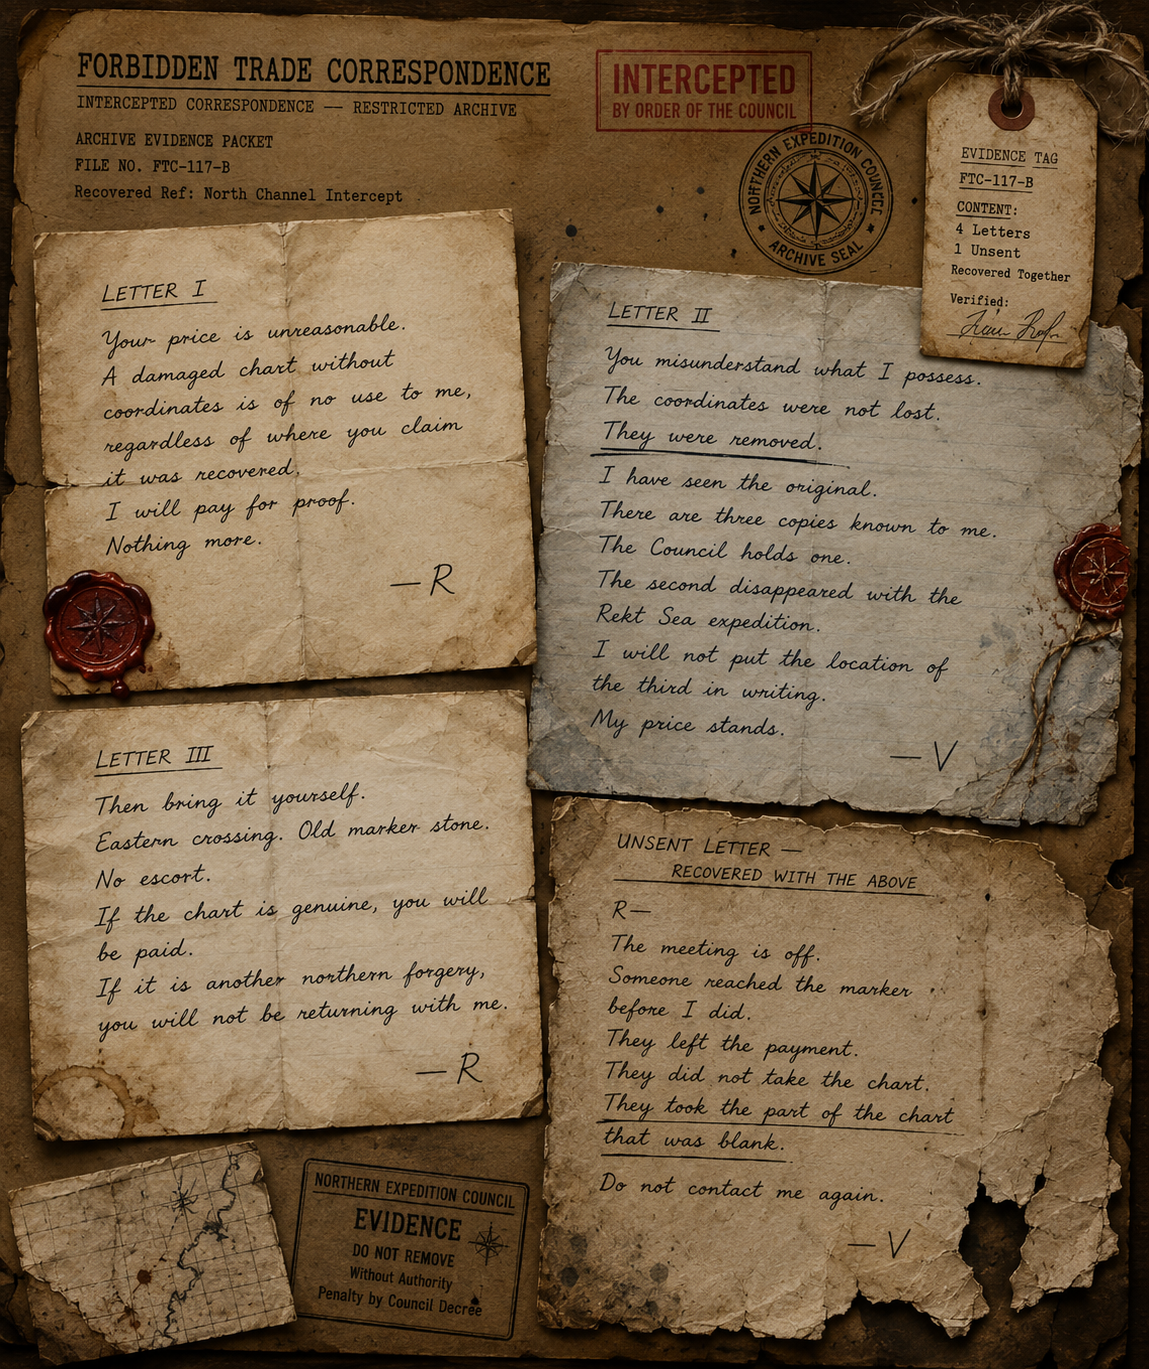 FORBIDDEN TRADE CORRESPONDENCE
INTERCEPTED CORRESPONDENCE — RESTRICTED ARCHIVE
ARCHIVE EVIDENCE PACKET
FILE NO. FTC-117-B
Recovered Ref: North Channel Intercept
INTERCEPTED
BY ORDER OF THE COUNCIL
NORTHERN EXPEDITION COUNCIL
ARCHIVE SEAL
EVIDENCE TAG
FTC-117-B
CONTENT:
4 Letters
1 Unsent
Recovered Together
Verified:
LETTER I
Your price is unreasonable.
A damaged chart without
coordinates is of no use to me,
regardless of where you claim
it was recovered.
I will pay for proof.
Nothing more.
—R
LETTER II
You misunderstand what I possess.
The coordinates were not lost.
They were removed.
I have seen the original.
There are three copies known to me.
The Council holds one.
The second disappeared with the
Rekt Sea expedition.
I will not put the location of
the third in writing.
My price stands.
—V
LETTER III
Then bring it yourself.
Eastern crossing. Old marker stone.
No escort.
If the chart is genuine, you will
be paid.
If it is another northern forgery,
you will not be returning with me.
—R
UNSENT LETTER —
RECOVERED WITH THE ABOVE
R—
The meeting is off.
Someone reached the marker
before I did.
They left the payment.
They did not take the chart.
They took the part of the chart
that was blank.
Do not contact me again.
—V
NORTHERN EXPEDITION COUNCIL
EVIDENCE
DO NOT REMOVE
Without Authority
Penalty by Council Decree